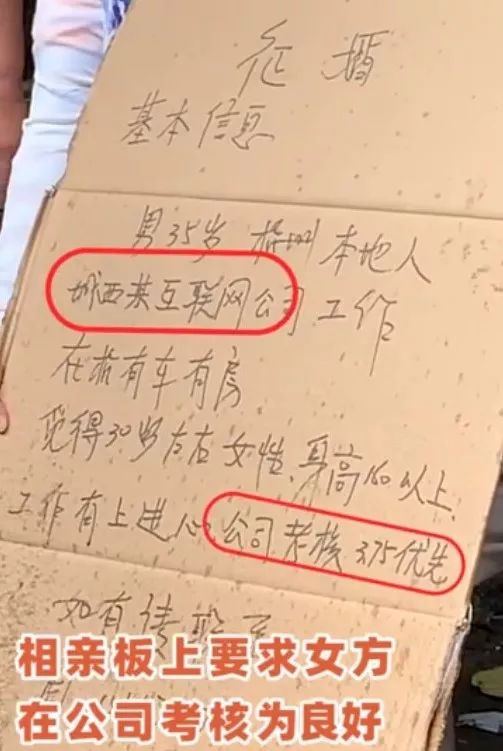 征婚
基本信息
男35岁 杭州本地人
城西某互联网公司工作
在杭有车有房
觅得30岁左右女性、身高160以上、
工作有上进心 公司考核3.75优先
如有请联系
相亲板上要求女方
在公司考核为良好